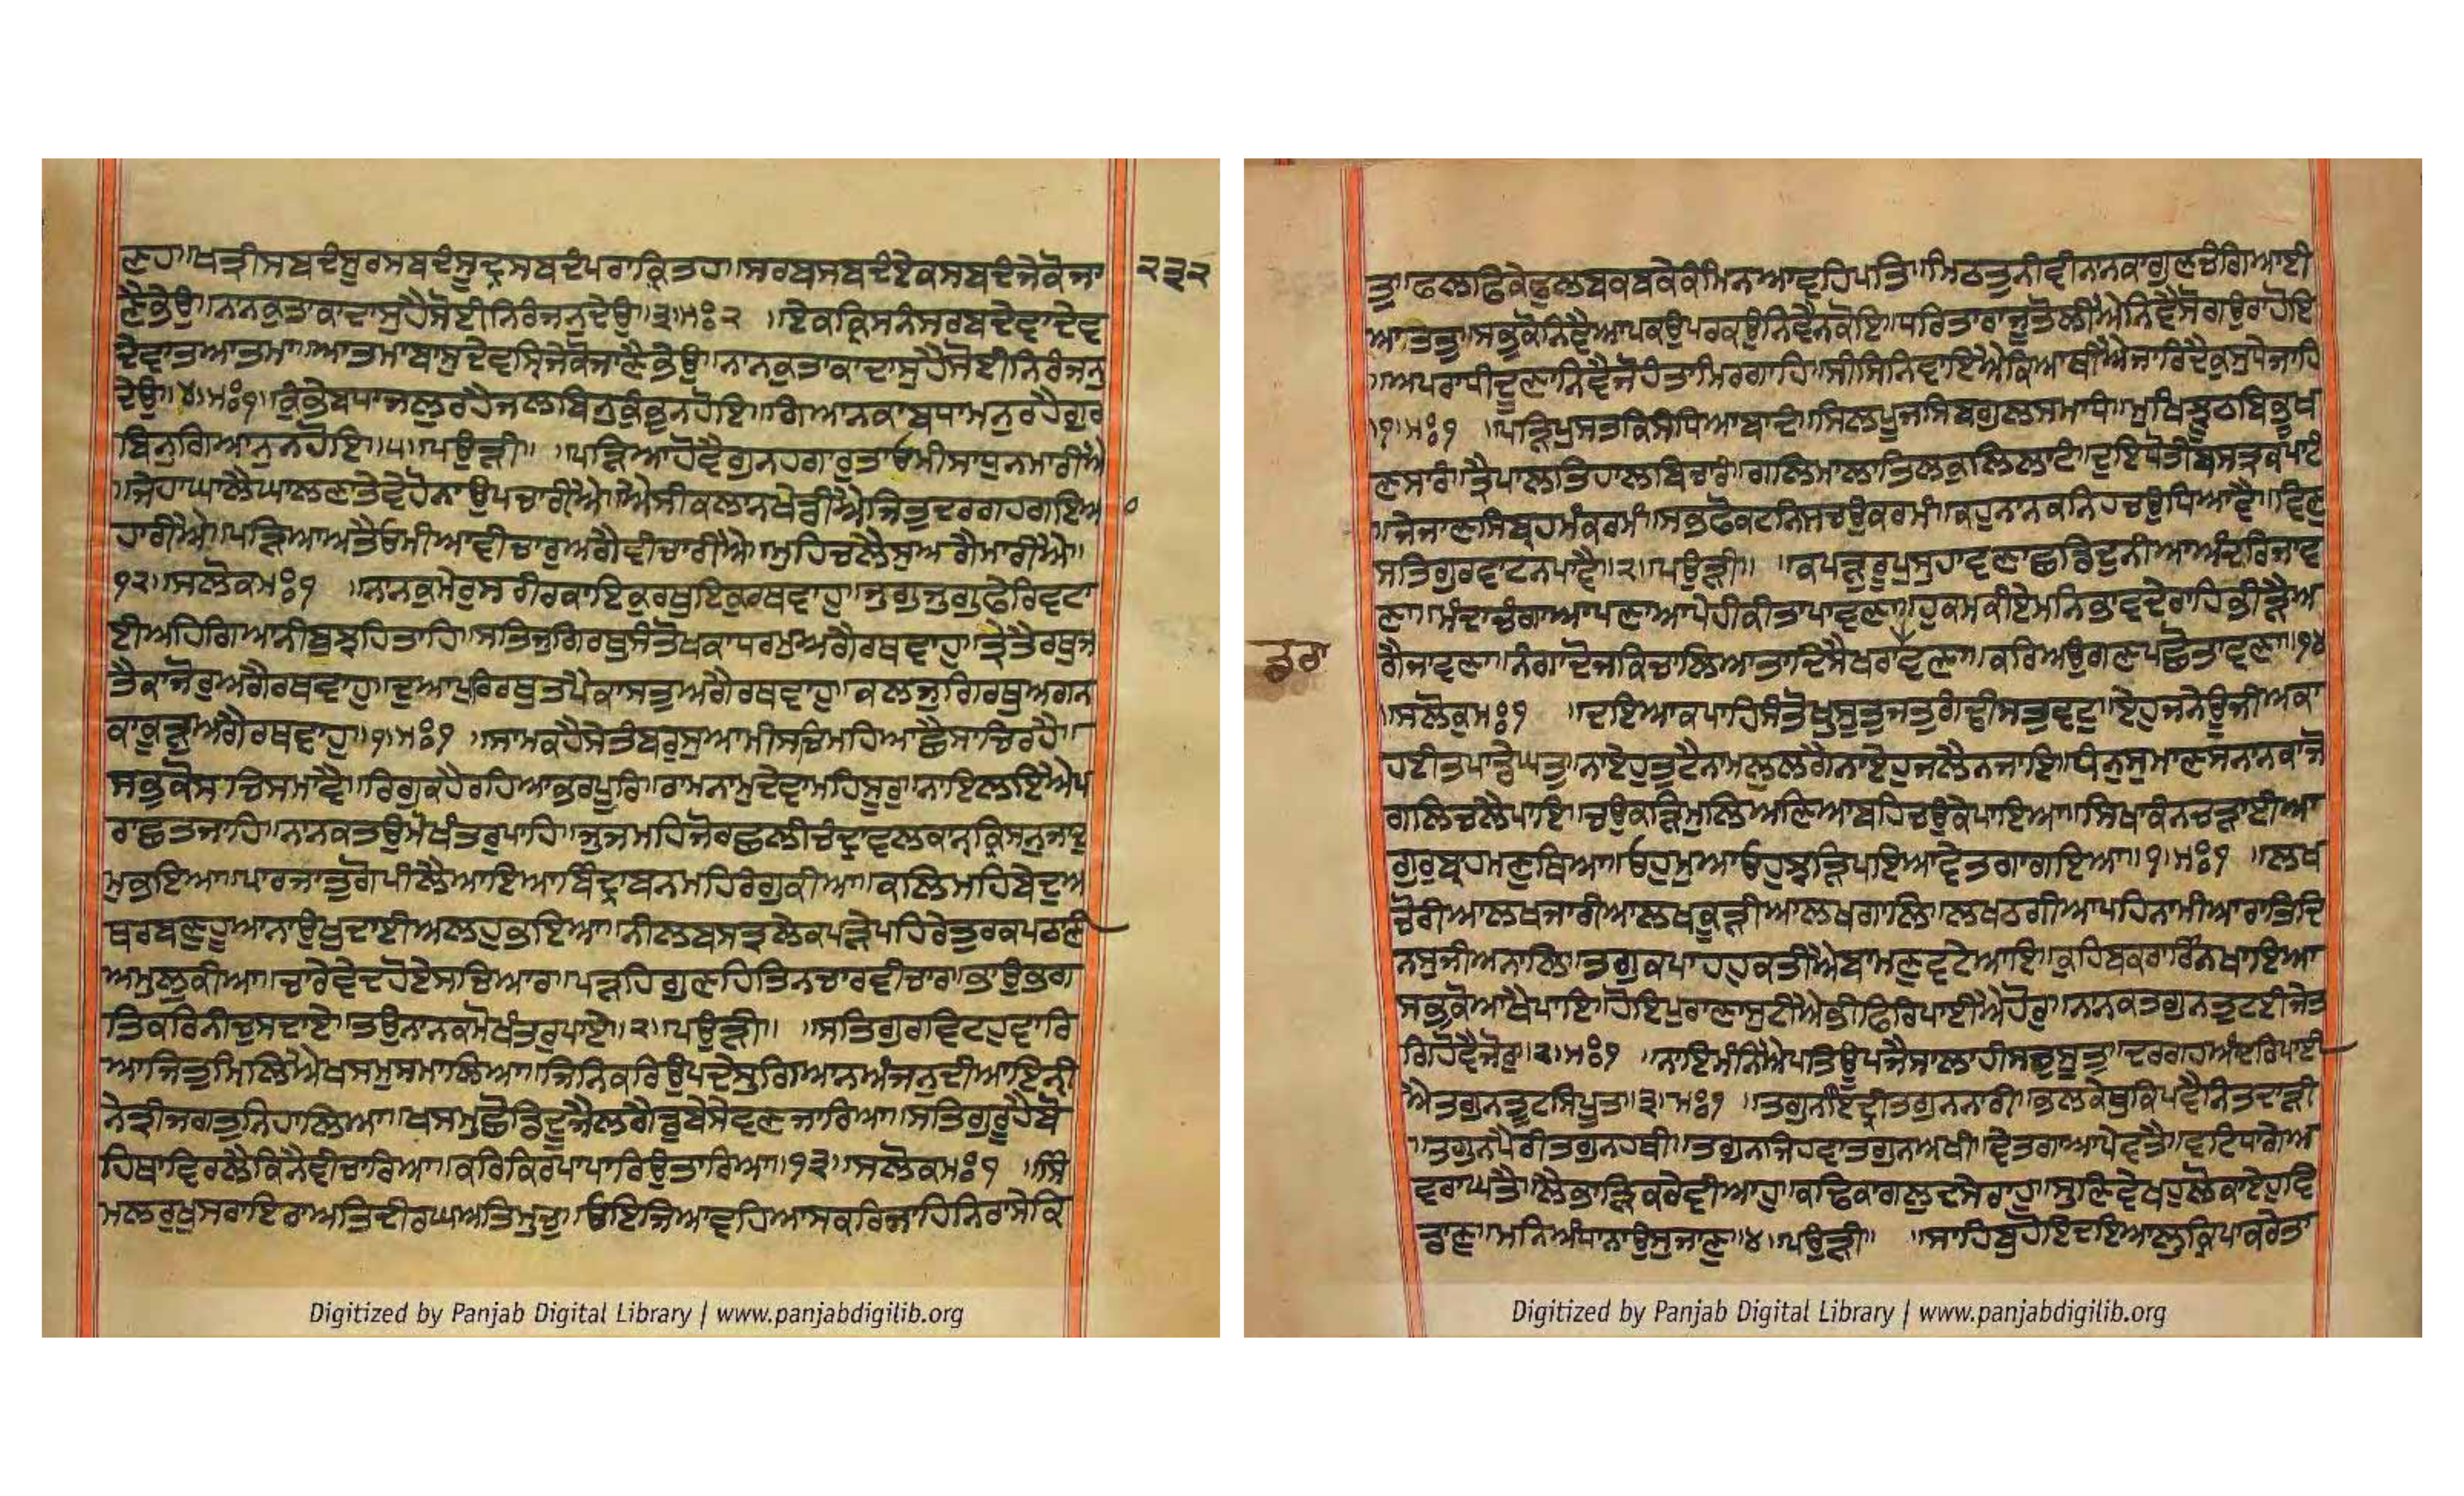 ਣਹ॥ਖਤ੍ਰੀਸਬਦੰਸੂਰਸਬਦੰਸੂਦ੍ਰਸਬਦੰਪਰਾਕ੍ਰਿਤਹ॥ਸਰਬਸਬਦੰਏਕਸਬਦੰਜੇਕੋਜਾ
੨੩੨
ਣੈਭੇਉ॥ਨਨਕੁਤਾਕਾਦਾਸੁਹੈਸੋਈਨਿਰੰਜਨੁਦੇਉ॥੩॥ਮਃ੨ ॥ਏਕਕ੍ਰਿਸਨੰਸਰਬਦੇਵਾਦੇਵ
ਦੇਵਾਤਆਤਮਾ॥ਆਤਮਾਬਾਸੁਦੇਵਸ੍ਯਿਜੇਕੋਜਾਣੈਭੇਉ॥ਨਾਨਕੁਤਾਕਾਦਾਸੁਹੈਸੋਈਨਿਰੰਜਨੁ
ਦੇਉ॥੪॥ਮਃ੧॥ਕੁੰਭੇਬਧਾਜਲੁਰਹੈਜਲਬਿਨੁਕੁੰਭੁਨਹੋਇ॥ਗਿਆਨਕਾਬਧਾਮਨੁਰਹੈਗੁਰ
ਬਿਨੁਗਿਆਨੁਨਹੋਇ॥੫॥ਪਉੜੀ॥ ॥ਪੜਿਆਹੋਵੈਗੁਨਹਗਾਰੁਤਾਓਮੀਸਾਧੁਨਮਾਰੀਐ
॥ਜੇਹਾਘਾਲੈਘਾਲਣਤੇਵੇਹੋਨਾਉਪਚਾਰੀਐ॥ਐਸੀਕਲਾਨਖੇਡੀਐਜਿਤੁਦਰਗਹਗਇਅ
ਹਾਰੀਐ॥ਪੜਿਆਅਤੈਓਮੀਆਵੀਚਾਰੁਅਗੈਵੀਚਾਰੀਐ॥ਮੁਹਿਚਲੈਸੁਅਗੈਮਾਰੀਐ॥
੧੨॥ਸਲੋਕਮਃ੧ ॥ਨਾਨਕੁਮੇਰੁਸਰੀਰਕਾਇਕੁਰਥੁਇਕੁਰਥਵਾਹੁ॥ਜੁਗੁਜੁਗੁਫੇਰਿਵਟਾ
ਈਅਹਿਗਿਅਨੀਬੁਝਹਿਤਾਹਿ॥ਸਤਿਜੁਗਿਰਥੁਸੰਤੋਖਕਾਧਰਮੁਅਗੈਰਥਵਾਹੁ॥ਤ੍ਰੇਤੈਰਥੁਜ
ਤੈਕਾਜੋਰੁਅਗੈਰਥਵਾਹੁ॥ਦੁਆਪੁਰਿਰਥੁਤਪੈਕਾਸਤੁਅਗੈਰਥਵਾਹੁ॥ਕਲਜੁਗਿਰਥੁਅਗਨ
ਕਾਕੂੜੁਅਗੈਰਥਵਾਹੁ॥੧॥ਮਃ੧ ॥ਸਾਮਕਹੈਸੇਤੰਬਰੁਸੁਆਮੀਸਚਿਮਹਿਆਛੈਸਾਚਿਰਹੈ॥
ਸਭੁਕੋਸਚਿਸਮਾਵੈ॥ਰਿਗੁਕਹੈਰਹਿਆਭਰਪੂਰਿ॥ਰਾਮਨਾਮੁਦੇਵਾਮਹਿਸੂਰੁ॥ਨਾਇਲਇਐਪ
ਰਾਛਤਜਾਹਿ॥ਨਾਨਕਤਉਮੋਖੰਤਰੁਪਾਹਿ॥ਜੁਜਮਹਿਜੋਰਛਲੀਚੰਦ੍ਰਾਵਲਕਾਨੑਕ੍ਰਿਸਨੁਜਾਦ
ਮੁਭਇਆ॥ਪਾਰਜਾਤੁਗੋਪੀਲੈਆਇਆਬਿੰਦ੍ਰਾਬਨਮਹਿਰੰਗੁਕੀਆ॥ਕਲਿਮਹਿਬੇਦੁਅ
ਥਰਬਣੁਹੂਆਨਾਉਖੁਦਾਈਅਲਹੁਭਇਆ॥ਨੀਲਬਸਤ੍ਰਲੇਕਪੜੇਪਹਿਰੇਤੁਰਕਪਠਾਣੀ
ਅਮੁਲੁਕੀਆ॥ਚਾਰੇਵੇਦਹੋਏਸਚਿਆਰਾ॥ਪੜਹਿਗੁਣਹਿਤਿਨਚਾਰਵੀਚਾਰ॥ਭਾਉਭਗ
ਤਿਕਰਿਨੀਚੁਸਦਾਏ॥ਤਉਨਾਨਕਮੋਖੰਤਰੁਪਾਏ॥੨॥ਪਉੜੀ॥ ॥ਸਤਿਗੁਰਵਿਟਹੁਵਾਰਿ
ਆਜਿਤੁਮਿਲਿਐਖਸਮੁਸਮਾਲਿਆ॥ਜਿਨਿਕਰਿਉਪਦੇਸੁਗਿਆਨਅੰਜਨੁਦੀਆਇਨੀ
ਨੇਤ੍ਰੀਜਗਤੁਨਿਹਾਲਿਆ॥ਖਸਮੁਛੋਡਿਦੂਜੈਲਗੈਡੁਬੇਸੇਵਣਜਾਰਿਆ॥ਸਤਿਗੁਰੂਹੈਬੋ
ਹਿਥਾਵਿਰਲੈਕਿਨੈਵੀਚਾਰਿਆ॥ਕਰਿਕਿਰਪਾਪਾਰਿਉਤਾਰਿਆ॥੧੩॥ਸਲੋਕਮਃ੧ ॥ਸਿੰ
ਮਲਰੁਖੁਸਰਾਇਰਾਅਤਿਦੀਰਘਅਤਿਮੁਚੁ॥ਓਇਜਿਆਵਹਿਆਸਕਰਿਜਾਹਿਨਿਰਾਸੇਕਿ
Digitized by Panjab Digital Library | www.panjabdigilib.org
ਤੁ॥ਫਲਫਿਕੇਫੁਲਬਕਬਕੇਕੰਮਿਨਆਵਹਿਪਤਿ॥ਮਿਠਤੁਨੀਵੀਨਾਨਕਾਗੁਣਚੰਗਿਆਈ
ਆਤਤੁ॥ਸਭੁਕੋਨਿਵੈਆਪਕਉਪਰਕਉਨਿਵੈਨਕੋਇ॥ਧਰਿਤਾਰਾਜੂਤੋਲੀਐਨਿਵੈਸੋਗਉਰਾਹੋਇ
॥ਅਪਰਾਧੀਦੂਣਾਨਿਵੈਜੋਹੰਤਾਮਿਰਗਾਹਿ॥ਸੀਸਿਨਿਵਾਇਐਕਿਆਥੀਐਜਾਰਿਦੈਕੁਸੁਧੇਜਾਹਿ
॥੧॥ਮਃ੧ ॥ਪੜਿਪੁਸਤਕਿਸੰਧਿਆਬਾਦੰ॥ਸਿਲਪੂਜਸਿਬਗੁਲਸਮਾਧੰ॥ਮੁਖਿਝੂਠਬਿਭੂਖ
ਣਸਾਰੰ॥ਤ੍ਰੈਪਾਲਤਿਹਾਲਬਿਚਾਰੰ॥ਗਲਿਮਾਲਾਤਿਲਕੁਲਿਲਾਟੰ॥ਦੁਇਧੋਤੀਬਸਤ੍ਰਕਪਾਟੰ
॥ਜੇਜਾਣਸਿਬ੍ਰਹਮੰਕਰਮੰ॥ਸਭਫੋਕਟਨਿਸਚਉਕਰਮੰ॥ਕਹੁਨਾਨਕਨਿਹਚਉਧਿਆਵੈ॥ਵਿਣੁ
ਸਤਿਗੁਰਵਾਟਨਪਾਵੈ॥੨॥ਪਉੜੀ॥ ॥ਕਪੜੁਰੂਪੁਸੁਹਾਵਣਾਛਡਿਦੁਨੀਆਅੰਦਰਿਜਾਵ
ਣਾ॥ਮੰਦਾਚੰਗਾਆਪਣਾਆਪੇਹੀਕੀਤਾਪਾਵਣਾ॥ਹੁਕਮਕੀਏਮਨਿਭਾਵਦੇਰਾਹਿਭੀੜੈਅ
ਡਰਾ
ਗੈਜਾਵਣਾ॥ਨੰਗਾਦੋਜਕਿਚਾਲਿਆਤਾਦਿਸੈਖਰਾਵਣਾ॥ਕਰਿਅਉਗਣਪਛੋਤਾਵਣਾ॥੧੪
॥ਸਲੋਕੁਮਃ੧ ॥ਦਇਆਕਪਾਹਿਸੰਤੋਖੁਸੂਤੁਜਤੁਗੰਢੀਸਤੁਵਟੁ॥ਏਹੁਜਨੇਊਜੀਅਕਾ
ਹਈਤਪਾਡੇਘਤੁ॥ਨਾਏਹੁਤੁਟੈਨਾਮਲੁਲਗੈਨਾਏਹੁਜਲੈਨਜਾਇ॥ਧੰਨੁਸੁਮਾਣਸਨਾਨਕਾਜੋ
ਗਲਿਚਲੇਪਾਇ॥ਚਉਕੜਿਮੁਲਿਅਣਿਆਬਹਿਚਉਕੇਪਾਇਆ॥ਸਿਖਾਕੰਨਚੜਾਈਆ
ਗੁਰੁਬ੍ਰਹਮਣੁਥਿਆ॥ਓਹੁਮੁਆਓਹੁਝੜਿਪਇਆਵੇਤਗਾਗਇਆ॥੧॥ਮਃ੧ ॥ਲਖ
ਚੋਰੀਆਲਖਜਾਰੀਆਲਖਕੂੜੀਆਲਖਗਾਲਿ॥ਲਖਠਗੀਆਪਹਿਨਾਮੀਆਰਾਤਿਦਿ
ਨਸੁਜੀਅਨਾਲਿ॥ਤਗੁਕਪਾਹਹੁਕਤੀਐਬਾਮਣੁਵਟੇਆਇ॥ਕੁਹਿਬਕਰਾਰਿੰਨਿਖਾਇਆ
ਸਭੁਕੋਆਖੈਪਾਇ॥ਹੋਇਪੁਰਾਣਾਸੁਟੀਐਭੀਫਿਰਿਪਾਈਐਹੋਰੁ॥ਨਨਕਤਗੁਨਤੂਟਈਜੇਤ
ਗਿਹੋਵੈਜੋਰੁ॥੨॥ਮਃ੧ ॥ਨਾਇਮੰਨਿਐਪਤਿਊਪਜੈਸਾਲਾਹੀਸਚੁਸੂਤੁ॥ਦਰਗਹਅੰਦਰਿਪਾਈ
ਐਤਗੁਨਤੂਟਸਿਪੂਤ॥੩॥ਮਃ੧ ॥ਤਗੁਨਇੰਦ੍ਰੀਤਗੁਨਨਾਰੀ॥ਭਲਕੇਥੁਕਪਵੈਨਿਤਦਾੜੀ
॥ਤਗੁਨਪੈਰੀਤਗੁਨਹਥੀ॥ਤਗੁਨਜਿਹਵਾਤਗੁਨਅਖੀ॥ਵੇਤਗਾਆਪੇਵਤੈ॥ਵਟਿਧਾਗੇਅ
ਵਰਾਘਤੈ॥ਲੈਭਾੜਿਕਰੇਵੀਆਹੁ॥ਕਢਿਕਾਗਲੁਦਸੇਰਾਹੁ॥ਸੁਣਿਵੇਖਹੁਲੋਕਾਏਹੁਵਿ
ਡਾਣੁ॥ਮਨਿਅੰਧਾਨਾਉਸੁਜਾਣੁ॥੪॥ਪਉੜੀ॥ ॥ਸਾਹਿਬੁਹੋਇਦਇਆਲੁਕ੍ਰਿਪਾਕਰੇਤਾ
Digitized by Panjab Digital Library | www.panjabdigilib.org